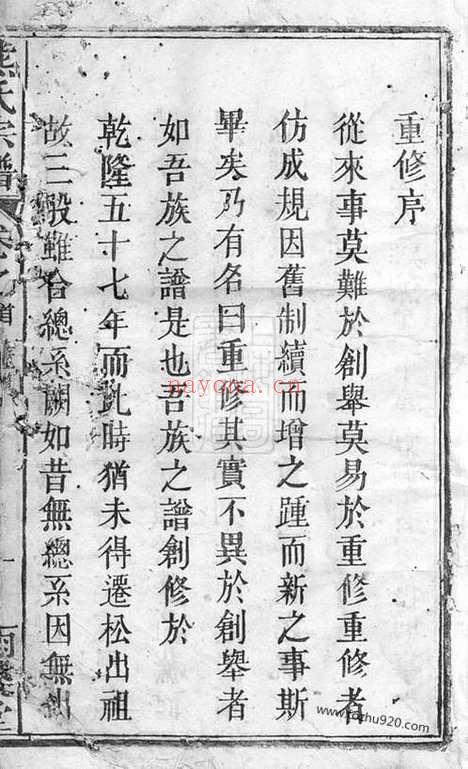 重修序
從來事莫難於創舉莫易於重修重修者
仿成規因舊制續而增之踵而新之事斯
畢矣乃有名曰重修其實不異於創舉者
如吾族之譜是也吾族之譜創修於
乾隆五十七年而此時猶未得遷松出祖
故三段雖合總系闕如昔無總系因無出
氏宗譜
卷之首
堂
nayona.cn
www.tozhu920.com